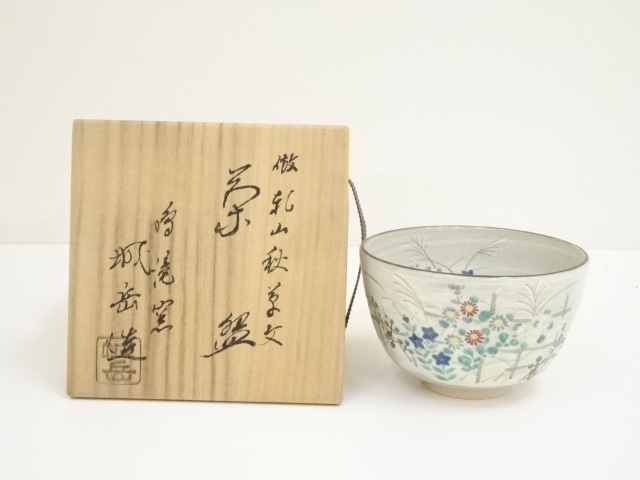 倣乾山秋草文
茶盌
鳴滝窯
城岳造
岳